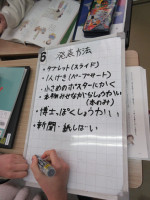 6 発表方法
・タブレット(スライド)
・人けき(ペープサート)
・小さめのポスターにかく
・本物みせながらしょうかい
(本のみ)
・博士、ぼくしょうかい
・新聞・紙しばい